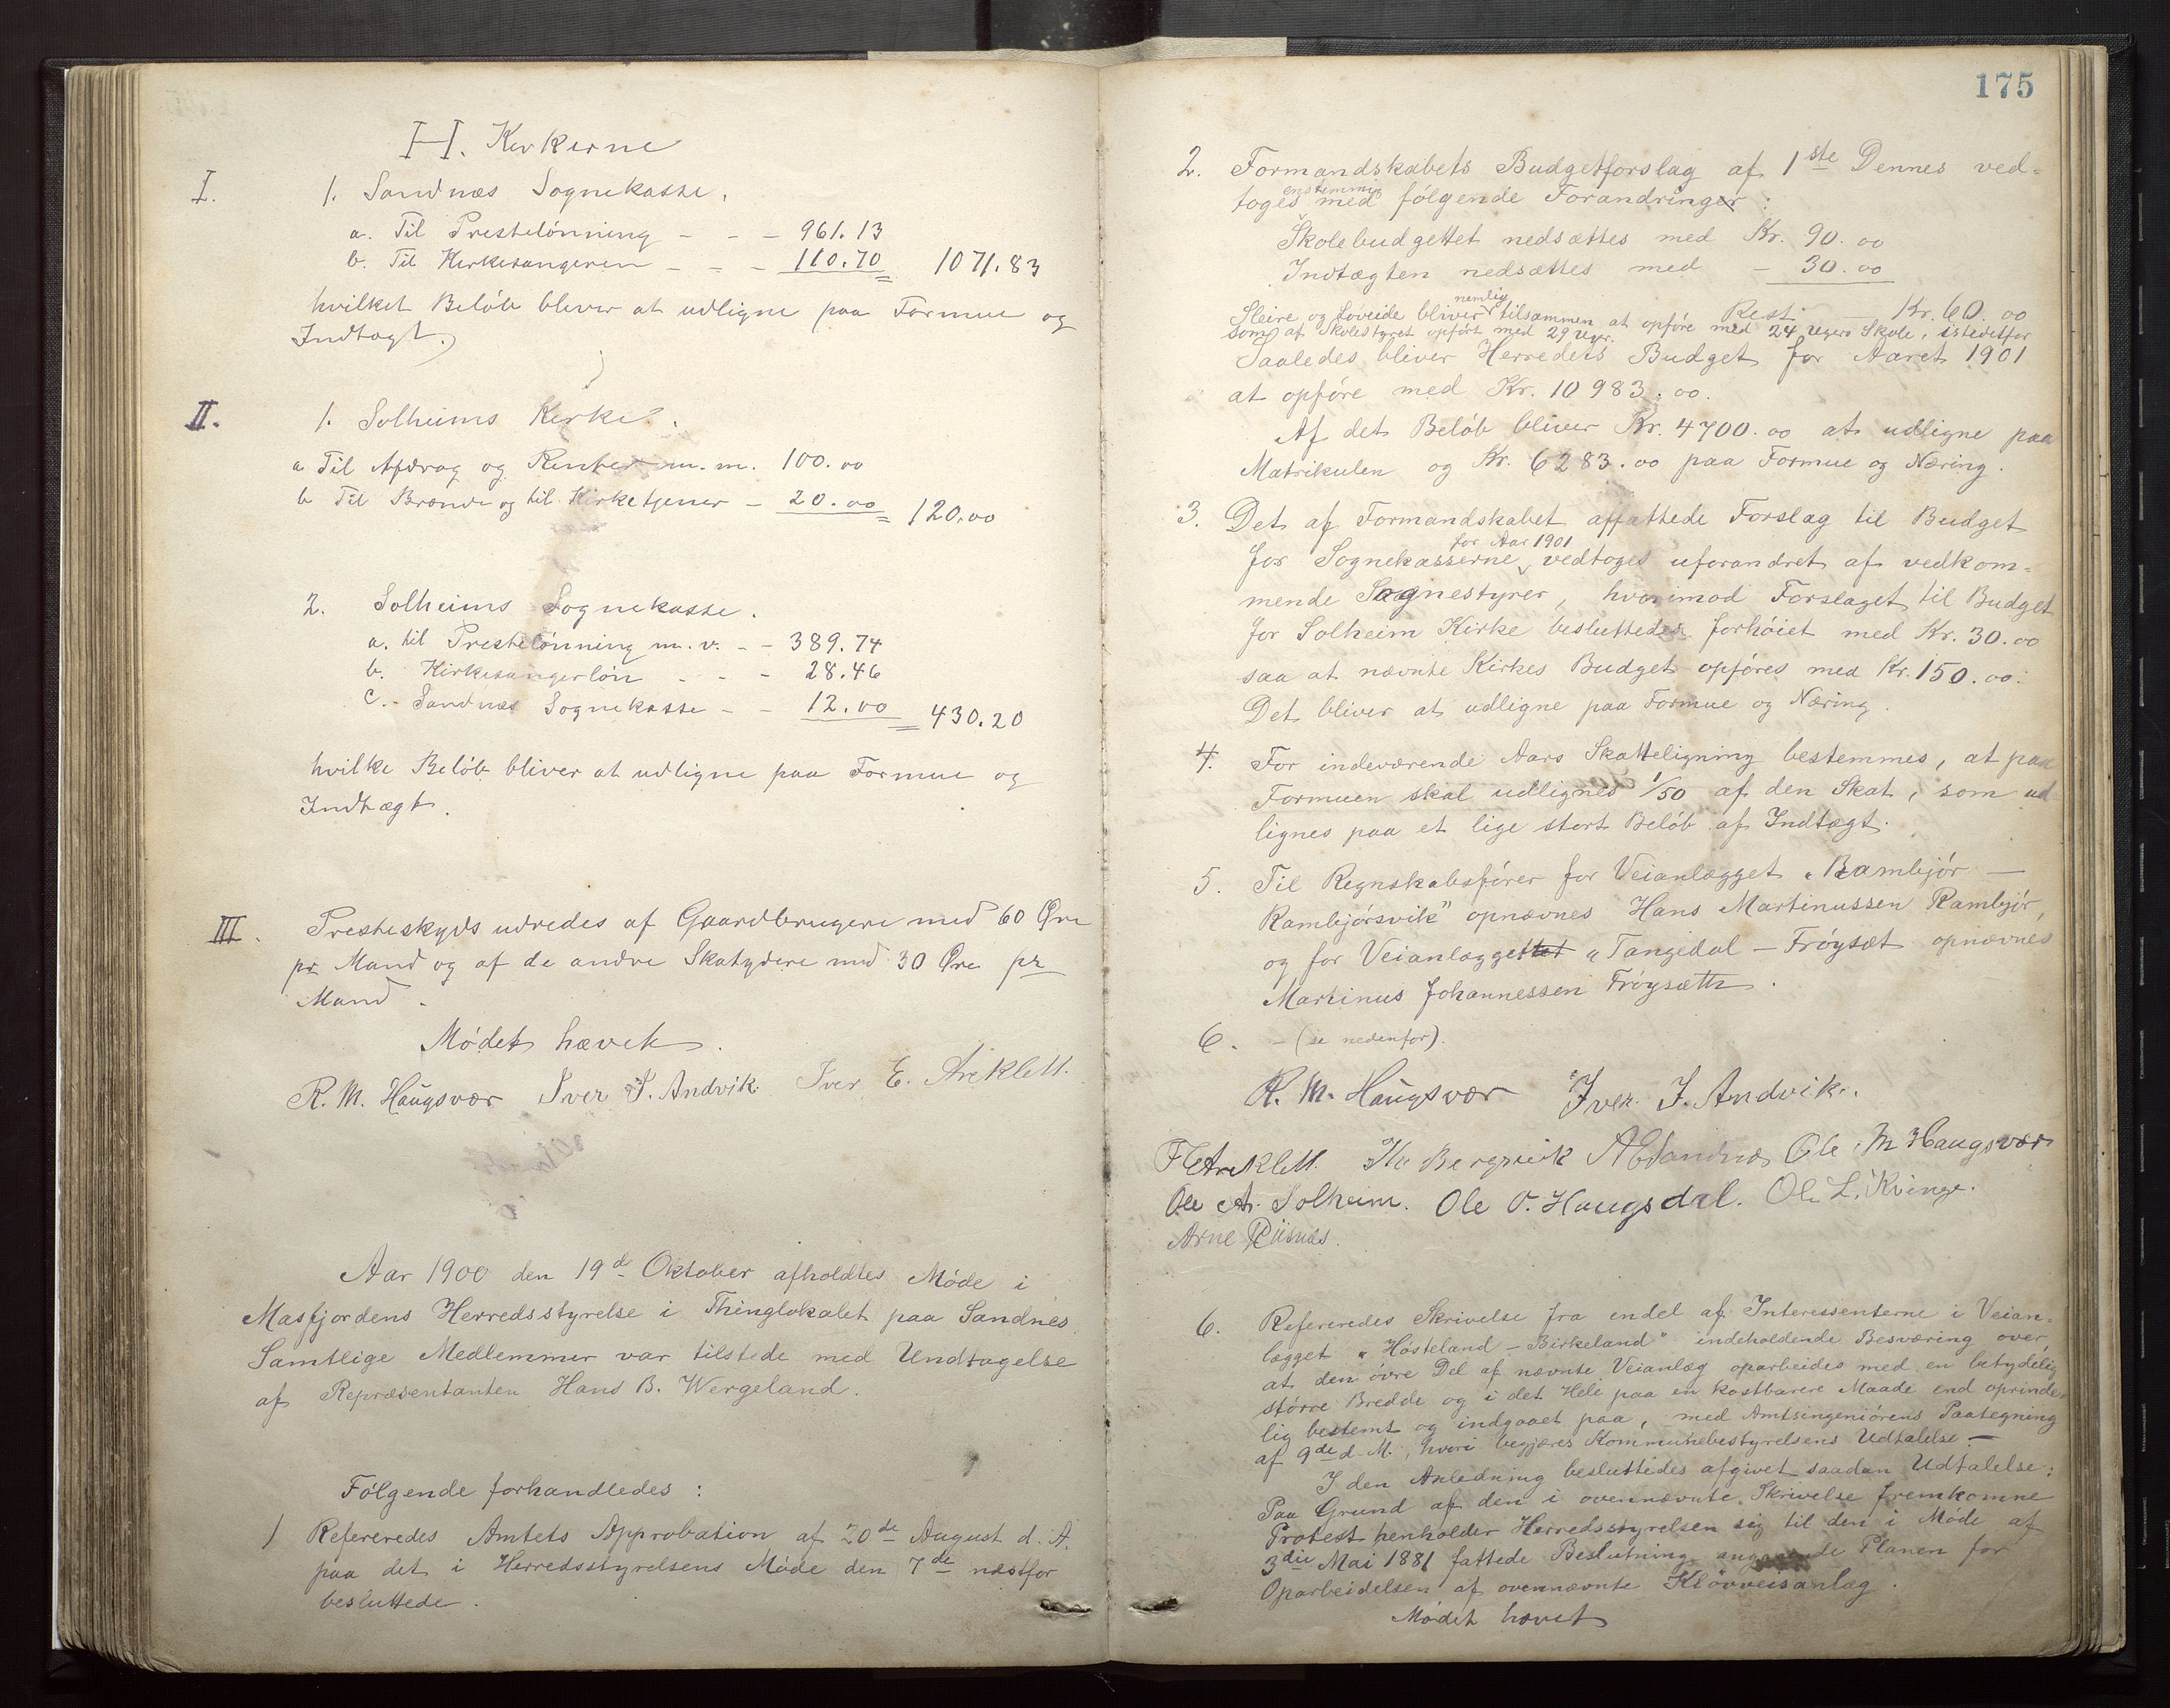 H. Kirkerne
I. 1. Sandnæs Sognekasse.
a. Til Prestelönning - - - 961.13
b. Til Kirkesangeren - - - 110.70 1071.83
hvilket Belöb bliver at udligne paa Formue og
Indtægt.
II. 1. Solheims Kirke.
a Til Afdrag og Renter m.m. 100.00
b Til Brænde og til Kirketjener - 20.00 120.00
2. Solheims Sognekasse.
a. til Prestelönning m.v. - - 389.74
b. Kirkesangerlön - - - 28.46
c. Sandnæs Sognekasse - - 12.00 430.20
hvilke Belöb bliver at udligne paa Formue og
Indtægt.
III. Presteskyds udredes af Gaardbrugere med 60 Øre
pr Mand og af de andre Skatydere med 30 Øre pr
Mand.
Mödet hævet.
R. M. Haugsvær Iver I. Andvik. Iver E. Areklett.
Aar 1900 den 19d Oktober afholdtes Möde i
Masfjordens Herredsstyrelse i Thinglokalet paa Sandnes
Samtlige Medlemmer var tilstede med Undtagelse
af Repræsentanten Hans B. Wergeland.
Fölgende forhandledes:
1 Refereredes Amtets Approbation af 20de August d. A.
paa det i Herredsstyrelsens Möde den 7de næstfor
besluttede.
175
2. Formandskabets Budgetforslag af 1ste Dennes ved-
toges enstemmig med fölgende Forandringer:
Skolebudgettet nedsættes med Kr. 90.00
Indtægten nedsættes med - 30.00
Rest - Kr. 60.00
Sleire og Löveide bliver nemlig tilsammen at opföre med 24 Ugers Skole, istedetfor
som af Skolestyret opfört med 29 Uger.
Saaledes bliver Herredets Budget for Aaret 1901
at opföre med Kr. 10983.00.
Af det Belöb bliver Kr. 4700.00 at udligne paa
Matrikulen og Kr. 6283.00 paa Formue og Næring.
3. Det af Formandskabet affattede Forslag til Budget
for Sognekasserne for Aar 1901 vedtoges uforandret af vedkom-
mende Sognestyrer, hvorimod Forslaget til Budget
for Solheim Kirke besluttedes forhöiet med Kr. 30.00
saa at nævnte Kirkes Budget opföres med Kr. 150.00.
Det bliver at udligne paa Formue og Næring.
4. For indeværende Aars Skatteligning bestemmes, at paa
Formuen skal udlignes 1/50 af den Skat, som ud
lignes paa et lige stort Belöb af Indtægt.
5. Til Regnskabsförer for Veianlægget "Rambjör -
Rambjörsvik" opnævnes Hans Martinussen Rambjör,
og for Veianlægget "Tangedal - Fröyset opnævnes
Martinus Johannessen Fröysæth.
6. - (se nedenfor).
R. M. Haugsvær Iver I. Andvik.
I E Areklett. A E Sandnæs Ole M Haugsvær
Ole A. Solheim. Ole O. Haugsdal. Ole L. Kvinge.
Arne Riisnæs.
6. Refereredes Skrivelse fra endel af Interessenterne i Veian-
lægget "Hösteland - Birkeland" indeholdende Besværing over
at den övre Del af nævnte Veianlæg oparbeides med en betydelig
större Bredde og i det Hele paa en kostbarere Maade end oprinde-
lig bestemt og indgaaet paa, med Amtsingeniörens Paategning
af 9de d. M., hvori begjæres Kommunebestyrelsens Udtalelse. -
I den Anledning besluttedes afgivet saadan Udtalelse:
Paa Grund af den i ovennævnte Skrivelse fremkomne
Protest henholder Herredsstyrelsen sig til den i Möde af
3die Mai 1881 fattede Beslutning angaaende Planen for
Oparbeidelsen af ovennævnte Klövveisanlæg.
Mödet hævet